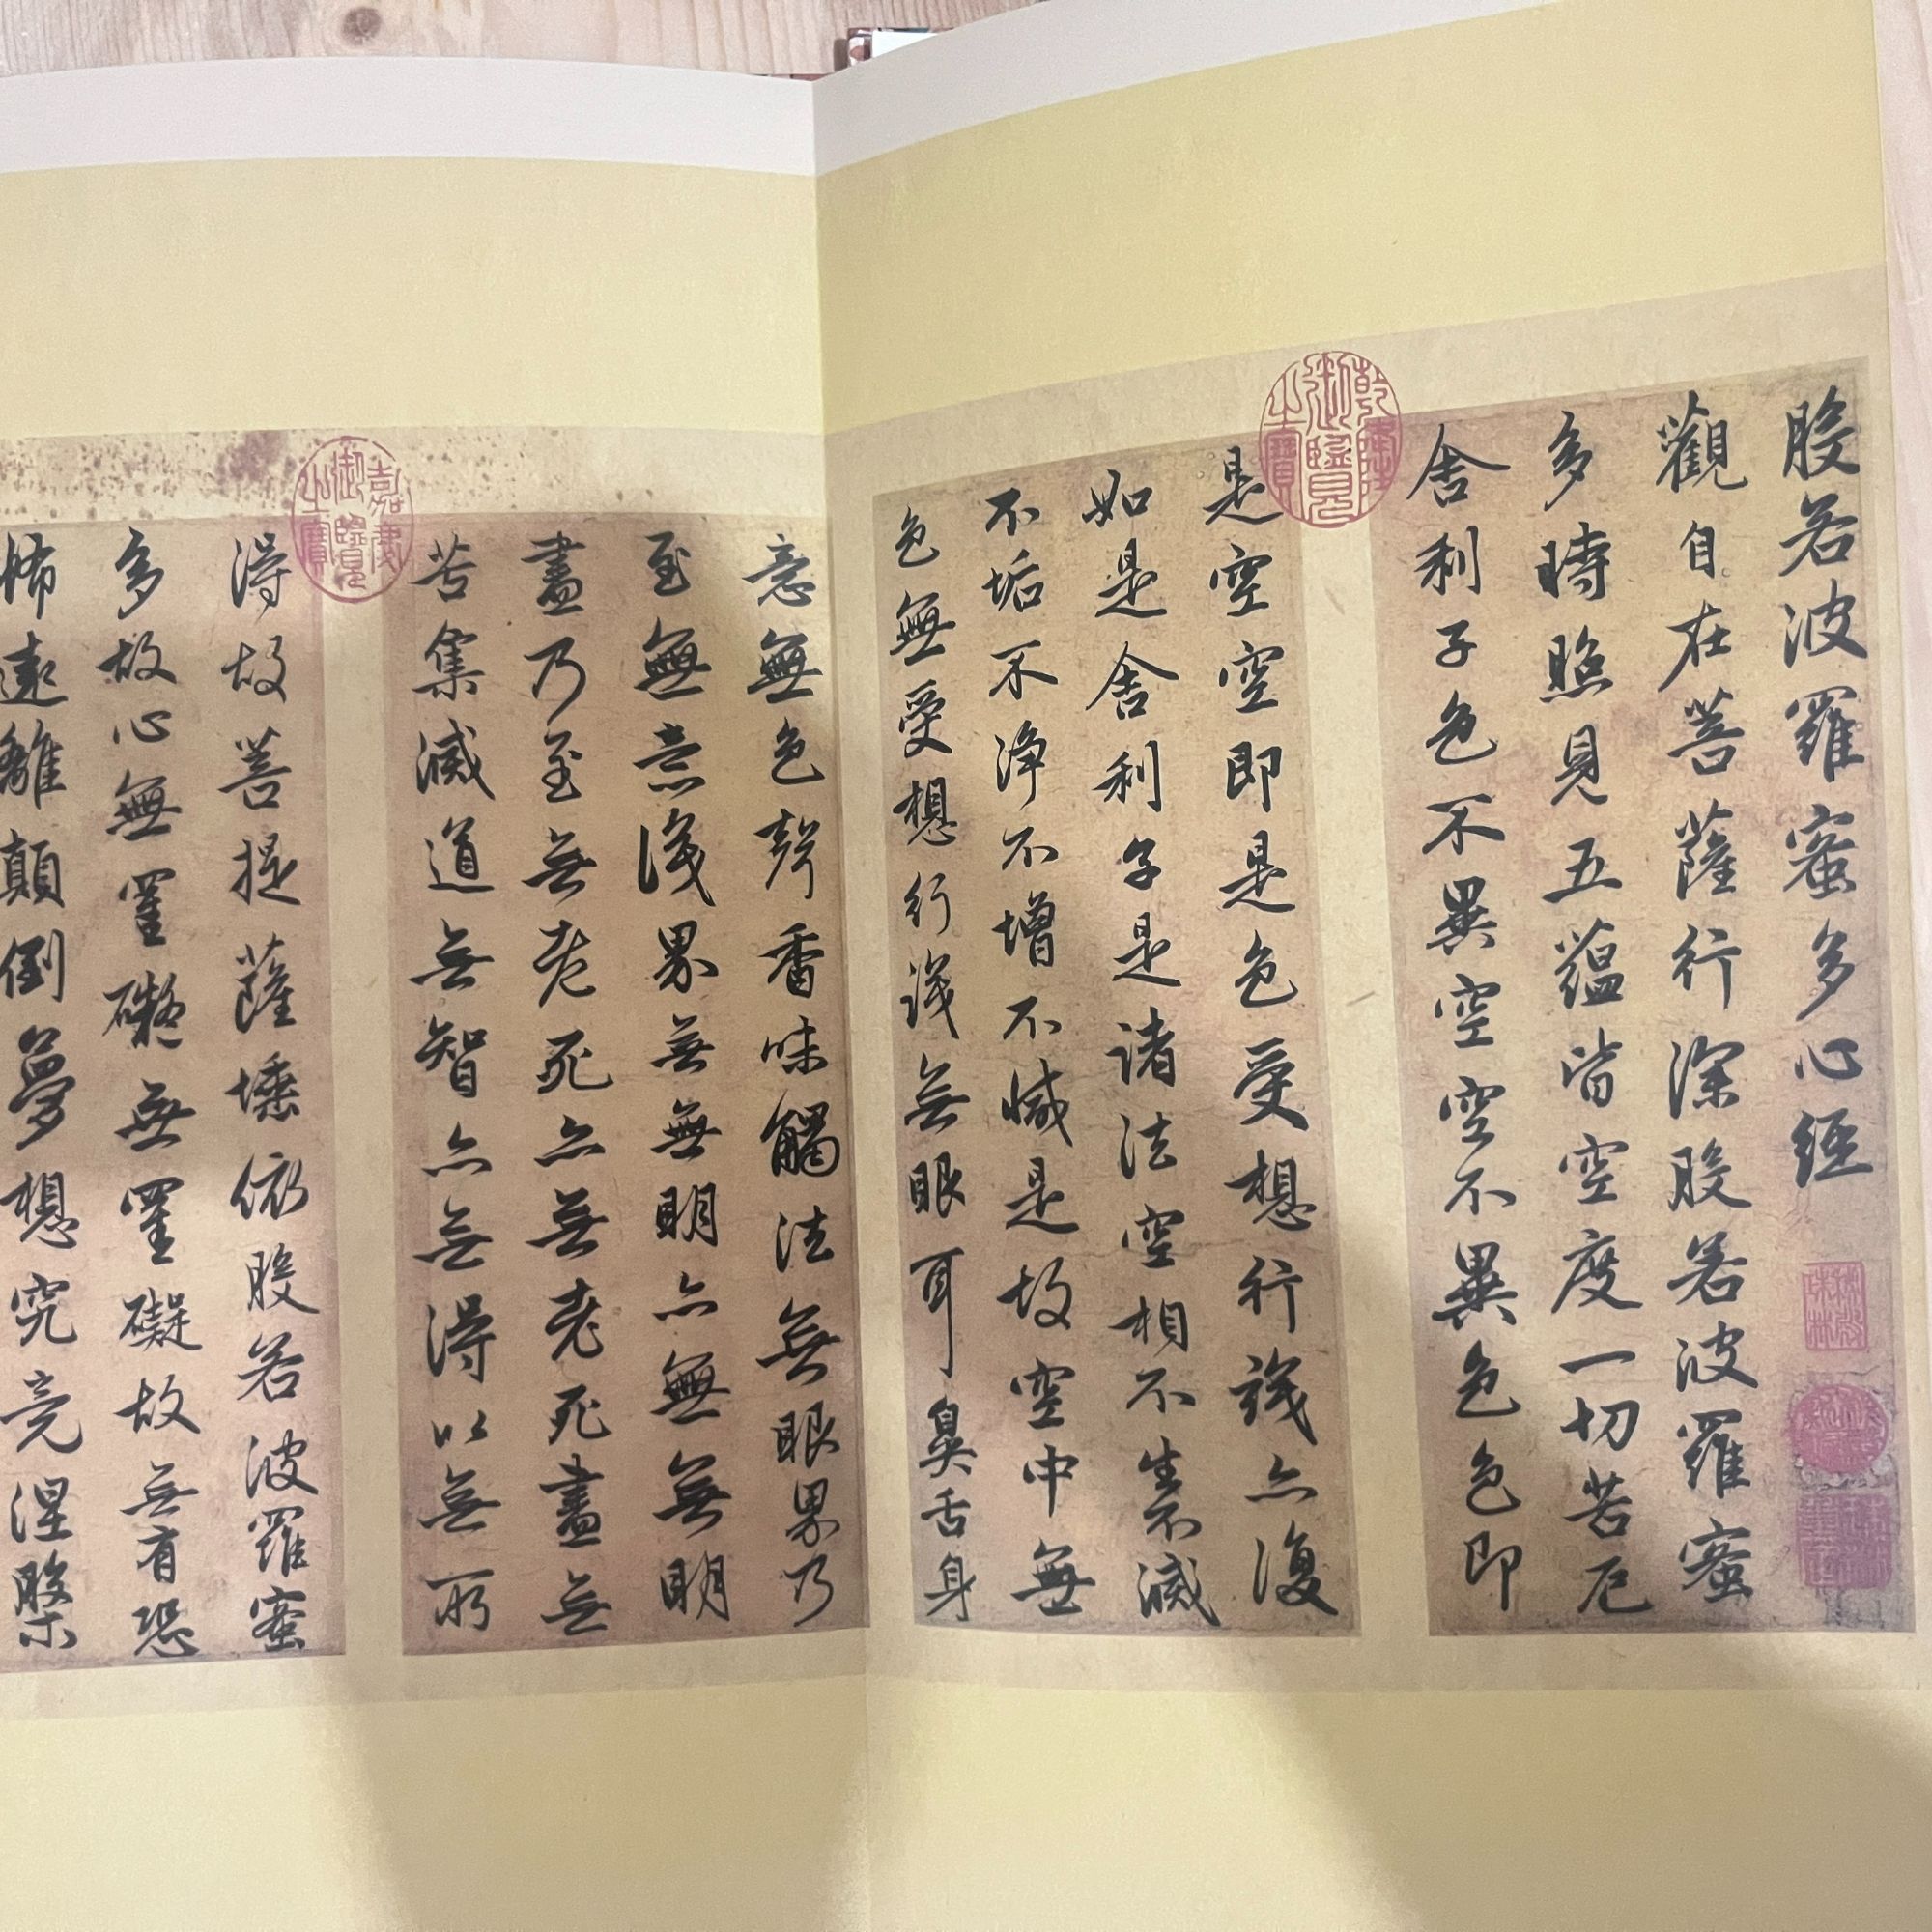 般若波羅蜜多心經
觀自在菩薩行深般若波羅蜜
多時照見五蘊皆空度一切苦厄
舍利子色不異空空不異色色即
是空空即是色受想行識亦復
如是舍利子是諸法空相不生不滅
不垢不淨不增不減是故空中無
色無受想行識無眼耳鼻舌身
意無色聲香味觸法無眼界乃
至無意識界無無明亦無無明
盡乃至無老死亦無老死盡無
苦集滅道無智亦無得以無所
得故菩提薩埵依般若波羅蜜
多故心無罣礙無罣礙故無有恐
怖遠離顛倒夢想究竟涅槃
乾隆御覽之寶
嘉慶御覽之寶